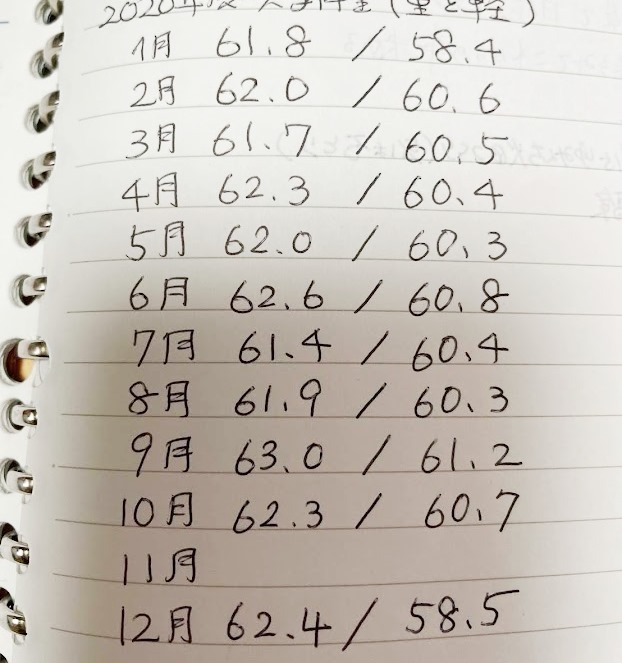 2020年度 (重と軽)
1月 61.8 / 58.4
2月 62.0 / 60.6
3月 61.7 / 60.5
4月 62.3 / 60.4
5月 62.0 / 60.3
6月 62.6 / 60.8
7月 61.4 / 60.4
8月 61.9 / 60.3
9月 63.0 / 61.2
10月 62.3 / 60.7
11月
12月 62.4 / 58.5